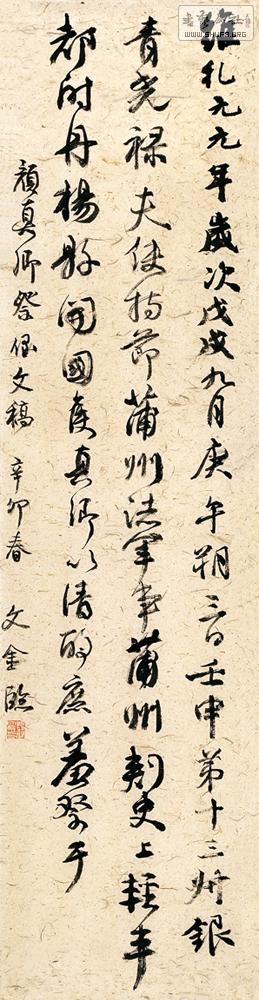 WWW.SHUFA.ORG
維乾元元年歲次戊戌九月庚午朔三日壬申第十三叔銀
青光祿夫使持節蒲州諸軍事蒲州刺史上輕車
都尉丹楊縣開國侯真卿以清酌庶羞祭于
顏真卿祭侄文稿 辛卯春 文金臨